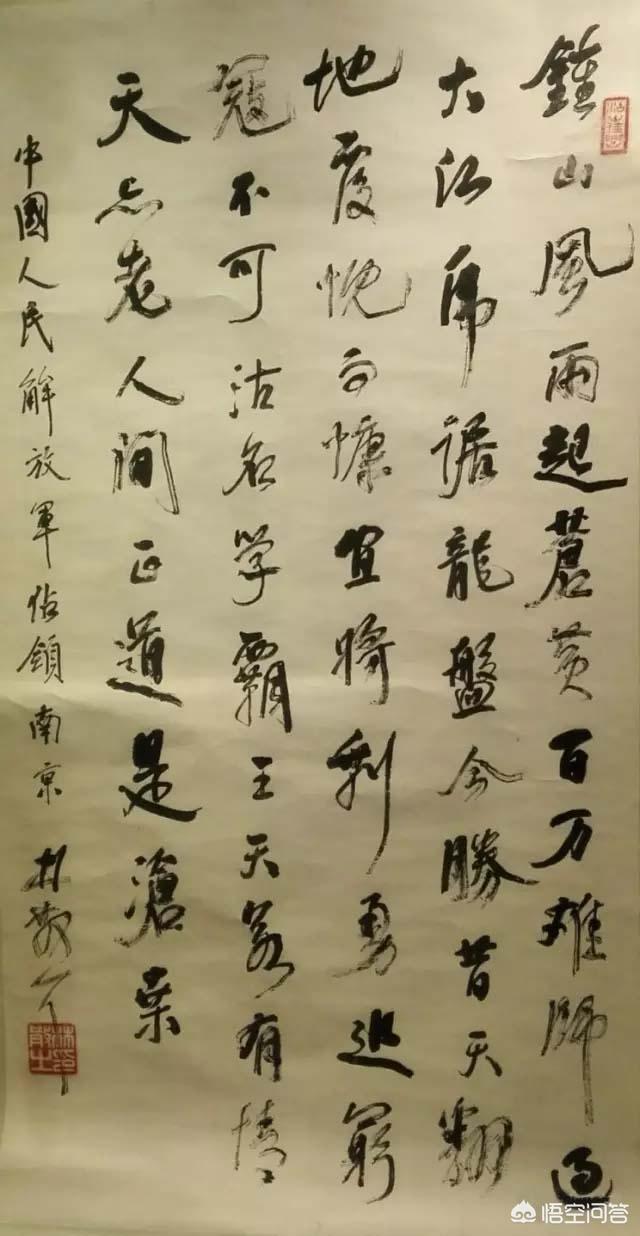 鍾山風雨起蒼黄百万雄師過
大江虎踞龍盤今勝昔天翻
地覆慨而慷宜將剩勇追窮
寇不可沽名学霸王天若有情
天亦老人間正道是滄桑
中國人民解放軍佔領南京 林散耳
林散之印
悟空问答